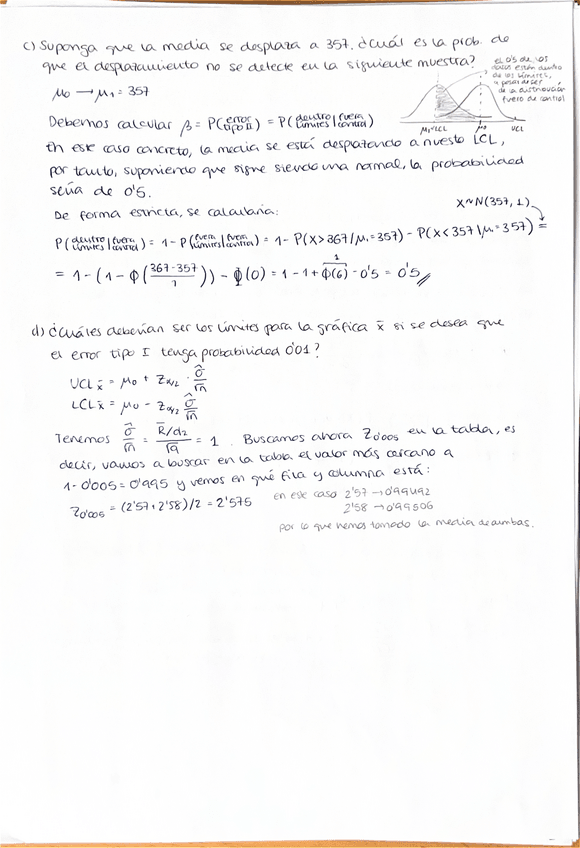 c) Suponga que la media se desplaza a 357. ¿Cuál es la prob. de
que el desplazamiento no se detecte en la siguiente muestra?
μ0 → μ1 = 357
el 0'5 de los
datos están dentro
de los límites,
a pesar de ser
de la distribución
fuera de control
μ1=LCL μ0 UCL
Debemos calcular β = P(error tipo II) = P(dentro límites | fuera control)
En este caso concreto, la media se está desplazando a nuestro LCL,
por tanto, suponiendo que sigue siendo una normal, la probabilidad
sería de 0'5.
De forma estricta, se calcularía: X~N(357, 1)
P(dentro límites | fuera control) = 1 - P(fuera límites | fuera control) = 1 - P(X > 367 / μ1 = 357) - P(X < 357 | μ1 = 357) =
= 1 - (1 - Φ((367-357)/1)) - Φ(0) = 1 - 1 + Φ(6) - 0'5 = 0'5
1
d) ¿Cuáles deberían ser los límites para la gráfica x̄ si se desea que
el error tipo I tenga probabilidad 0'01?
UCL x̄ = μ0 + Zα/2 · σ̂/√n
LCL x̄ = μ0 - Zα/2 σ̂/√n
Tenemos σ̂/√n = (R̄/d2)/√9 = 1. Buscamos ahora Z0'005 en la tabla, es
decir, vamos a buscar en la tabla el valor más cercano a
1 - 0'005 = 0'995 y vemos en qué fila y columna está:
Z0'005 = (2'57 + 2'58)/2 = 2'575 en este caso 2'57 → 0'99492
2'58 → 0'99506
por lo que hemos tomado la media de ambas.